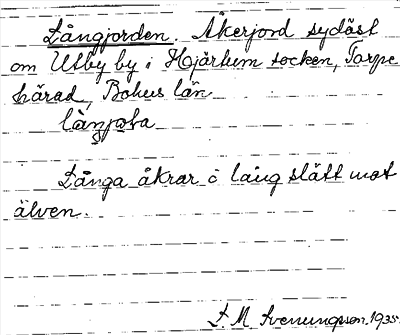 Långjorden. Åkerjord sydäst
om Ulby by i Hjärtum socken, Torpe
härad, Bohus län.
Långa åkrar å lång slätt mot
älven.
S. M. Svenungsson. 1935.